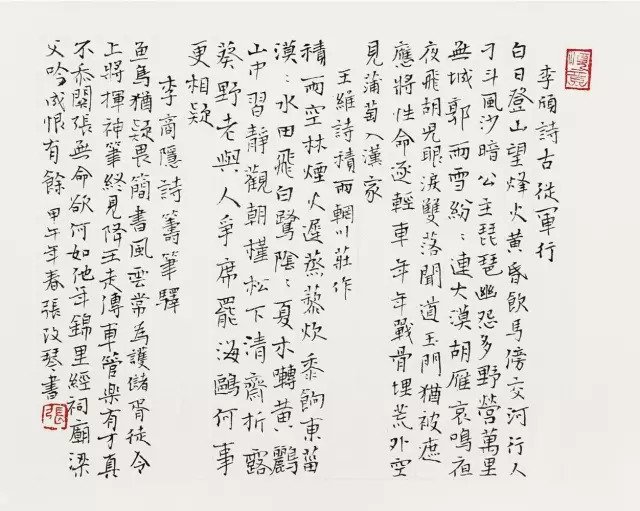 李頎詩古從軍行
白日登山望烽火黃昏飲馬傍交河行人
刁斗風沙暗公主琵琶幽怨多野營萬里
無城郭雨雪紛：連大漠胡雁哀鳴夜
夜飛胡兒眼淚雙落聞道玉門猶被遮
應將性命逐輕車年年戰骨埋荒外空
見蒲萄入漢家
王維詩積雨輞川莊作
積雨空林煙火遲蒸藜炊黍餉東菑
漠：水田飛白鷺陰：夏木囀黃鸝
山中習靜觀朝槿松下清齋折露
葵野老與人爭席罷海鷗何事
更相疑
李商隱詩籌筆驛
魚鳥猶疑畏簡書風雲常為護儲胥徒令
上將揮神筆終見降王走傳車管樂有才真
不忝關張無命欲何如他年錦里經祠廟梁
父吟成恨有餘 甲午年春張改琴書
張